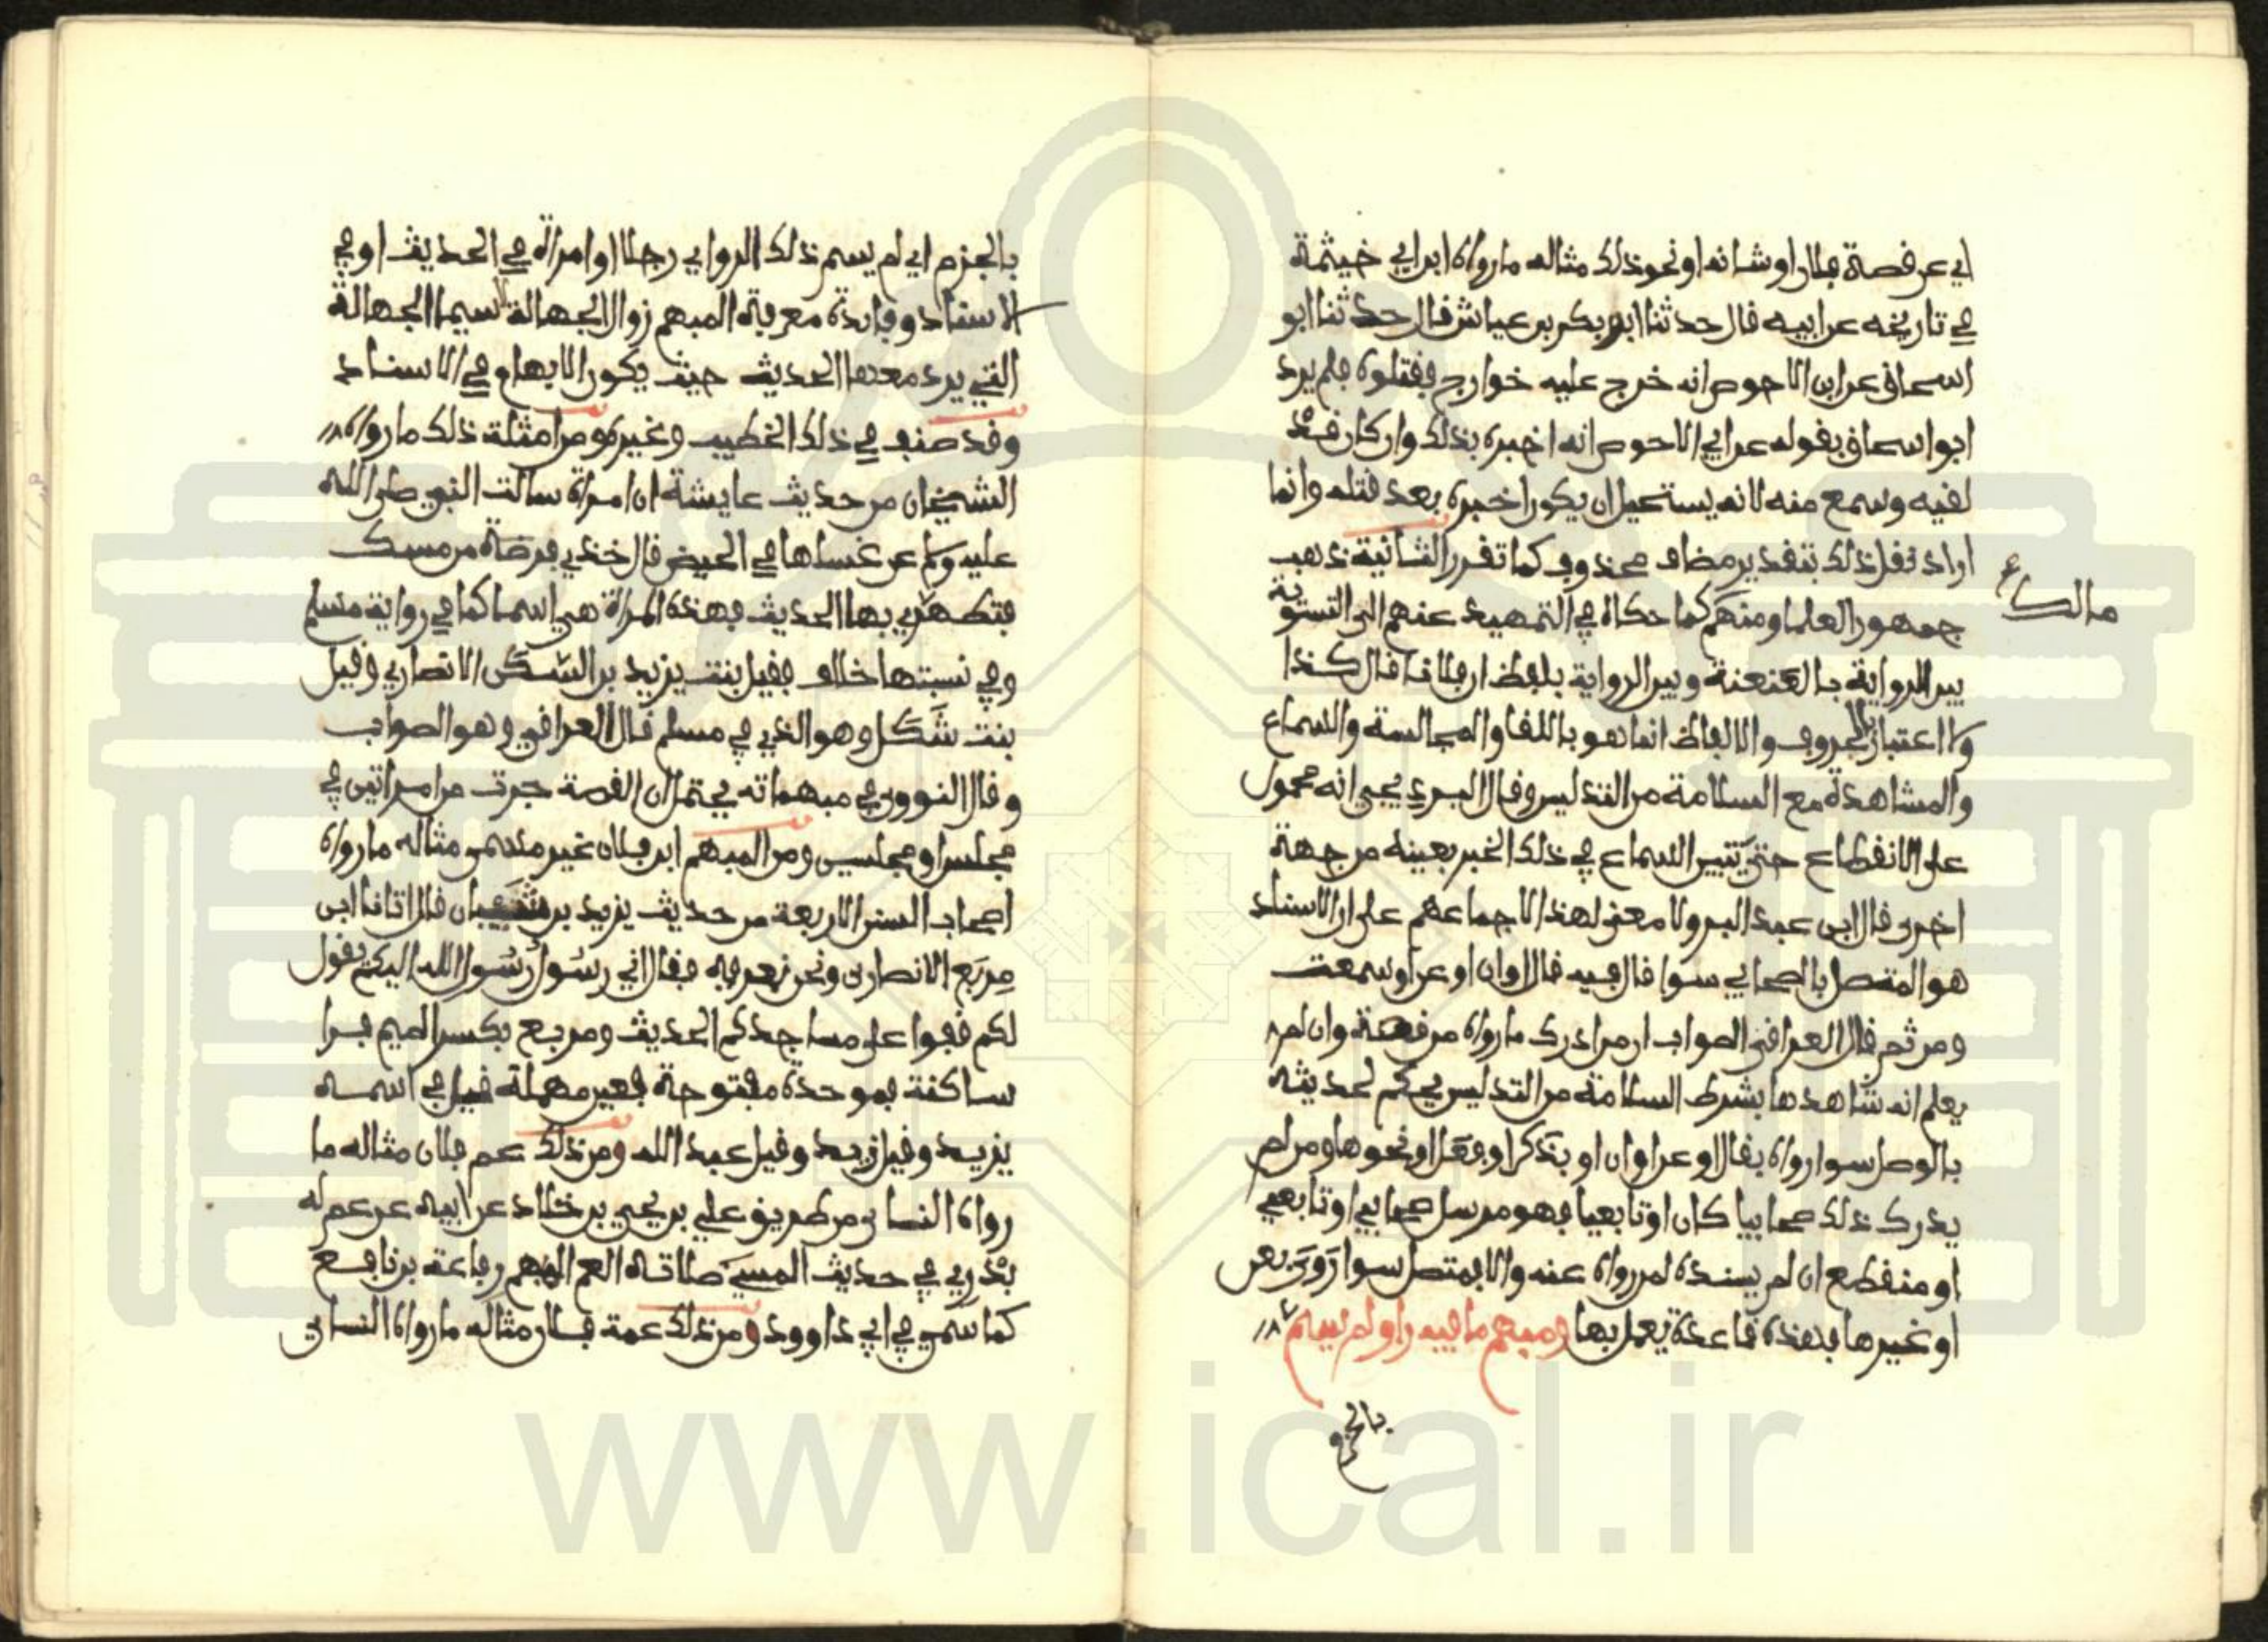 اي عن قصة فلان او شانه او نحو ذلك مثاله ما رواه ابن ابي خيثمة
في تاريخه عن ابيه قال حدثنا ابو بكر بن عياش قال حدثنا ابو
اسحاق عن ابن الاحوص انه خرج عليه خوارج فقتلوه فلم يرد
ابو اسحاق بقوله عن ابي الاحوص انه اخبره بذلك وان كان قد
لقيه وسمع منه لانه يستحيل ان يكون اخبره بعد قتله وانما
اراد نقل ذلك بتقدير مضاف محذوف كما تقرر الثانية ذهب
جمهور العلما ومنهم كما حكاه في التمهيد عنهم الى التسوية
مالك
بين الرواية بالعنعنة وبين الرواية بلفظ ان فلانا قال كذا
ولا اعتبار بالحروف والالفاظ انما هو باللقا والمجالسة والسماع
والمشاهدة مع السلامة من التدليس وقال البرديجي انه محمول
على الانقطاع حتى يتبين السماع في ذلك الخبر بعينه من جهة
اخرى قال ابن عبد البر ولا معنى لهذا لاجماعهم على ان الاسناد
هو المتصل بالصحابي سوا قال فيه قال او ان او عن او سمعت
ومن ثم قال العراقي الصواب ان من ادرك ما رواه من قصة وان لم
يعلم انه شاهدها بشرط السلامة من التدليس يحكم لحديثه
بالوصل سوا رواه بقال او عن او ان او بذكر او فعل او نحوها ومن لم
يدرك ذلك صحابيا كان او تابعيا فهو مرسل صحابي او تابعي
او منقطع ان لم يسنده لمن رواه عنه والا فمتصل سوا روى بعن
او غيرها فهذه قاعدة يعمل بها ومبهم ما فيه راو لم يسم
بالجزم
بالجزم اي لم يسم ذلك الراوي رجلا او امراة في الحديث او في
الاسناد وفايدة معرفة المبهم زوال الجهالة لا سيما الجهالة
التي يرد معها الحديث حيث يكون الابهام في الاسناد
وقد صنف في ذلك الخطيب وغيره ومن امثلة ذلك ما رواه
الشيخان من حديث عايشة ان امراة سالت النبي صلى الله
عليه وسلم عن غسلها في الحيض قال خذي فرصة من مسك
فتطهري بها الحديث فهذه المراة هي اسما كما في رواية مسلم
وفي نسبتها خلاف فقيل بنت يزيد بن السكن الانصاري وقيل
بنت شكل وهو الذي في مسلم قال العراقي وهو الصواب
وقال النووي في مبهماته يحتمل ان القصة جرت من امراتين في
مجلس او مجلسين ومن المبهم ابن فلان غير مسمى مثاله ما رواه
اصحاب السنن الاربعة من حديث يزيد بن شيبان قال اتانا ابن
مربع الانصارى ونحن بعرفة فقال اني رسول رسول الله اليكم يقول
لكم قفوا على مساجدكم الحديث ومربع بكسر الميم فرا
ساكنة فموحدة مفتوحة فعين مهملة قيل في اسمه
يزيد وقيل زيد وقيل عبد الله ومن ذلك عم فلان مثاله ما
رواه النسائي من طريق علي بن يحيى بن خلاد عن ابيه عن عم له
بدري في حديث المسي صلاته العم المبهم رفاعة بن رافع
كما سمي في ابي داوود ومن ذلك عمة فلان مثاله ما رواه النسائي
www.ical.ir